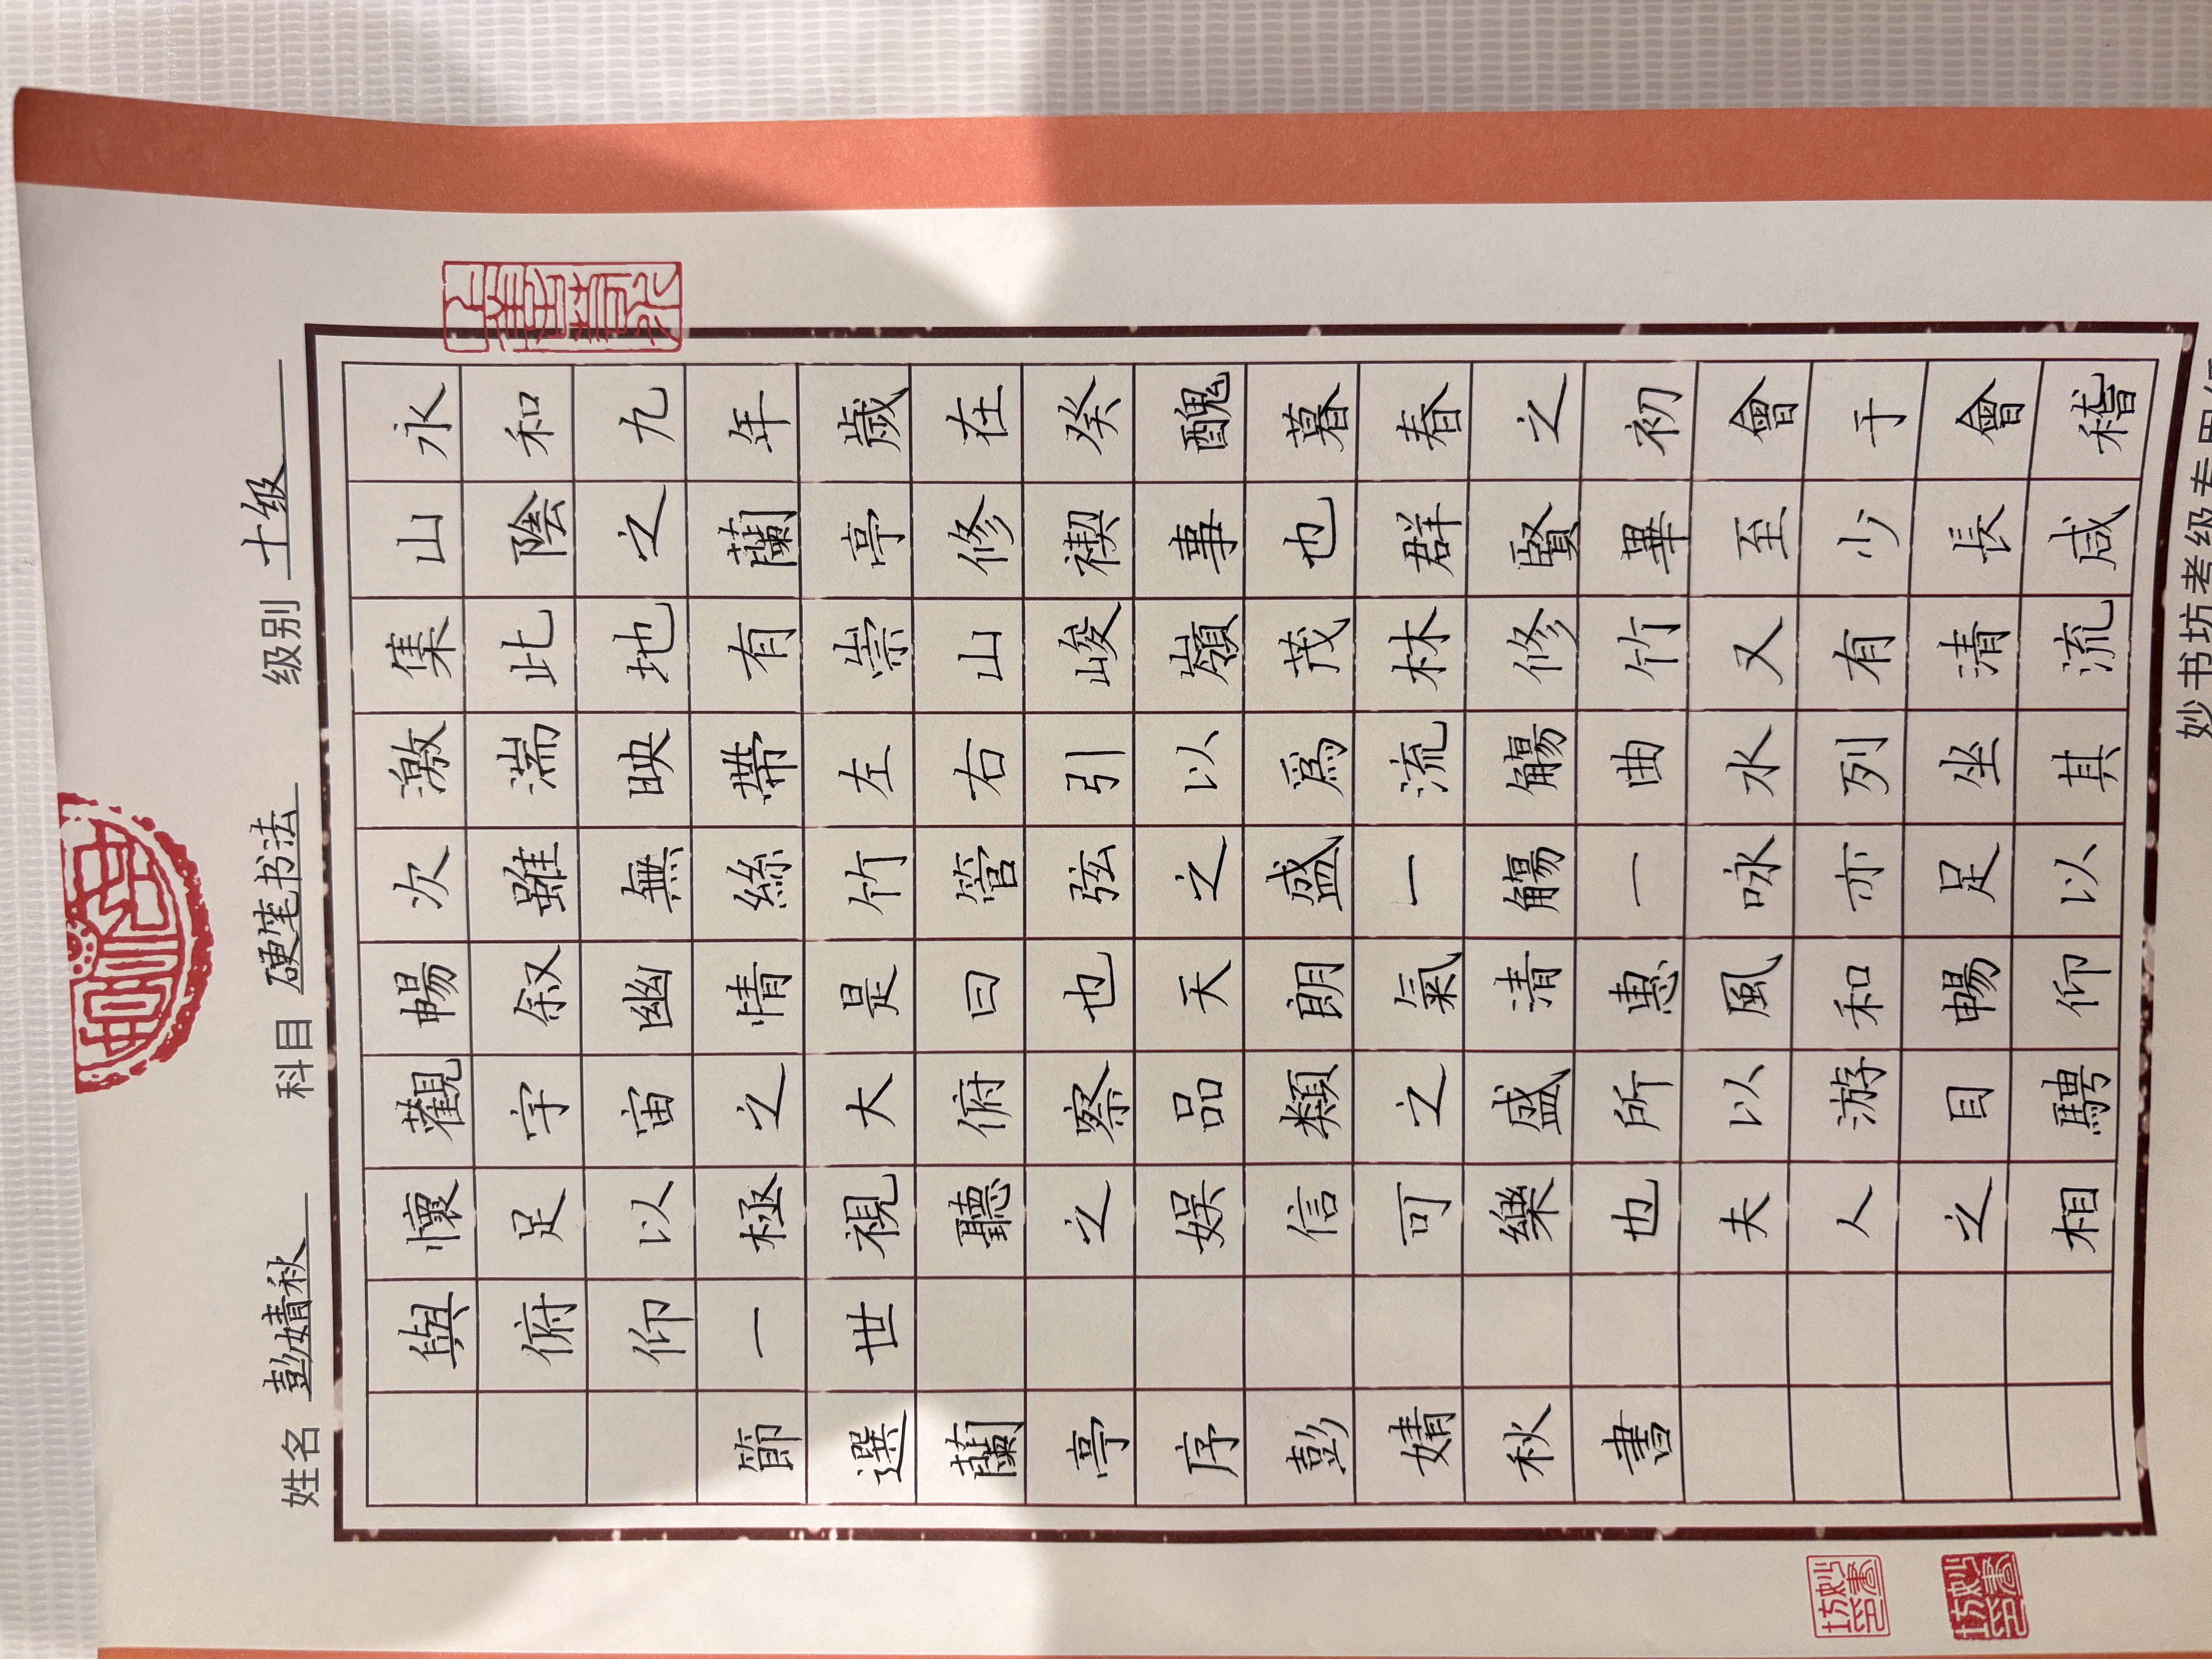 姓名 彭婧秋 科目 硬笔书法 级别 十级
永和九年歲在癸醜暮春之初會于會稽
山陰之蘭亭修禊事也群賢畢至少長咸
集此地有崇山峻嶺茂林修竹又有清流
激湍映帶左右引以爲流觴曲水列坐其
次雖無絲竹管弦之盛一觴一咏亦足以
暢叙幽情是曰也天朗氣清惠風和暢仰
觀宇宙之大俯察品類之盛所以游目騁
懷足以極視聽之娛信可樂也夫人之相
與俯仰一世
節選蘭亭序彭婧秋書
妙書坊印
妙書坊印
妙书坊考级专用